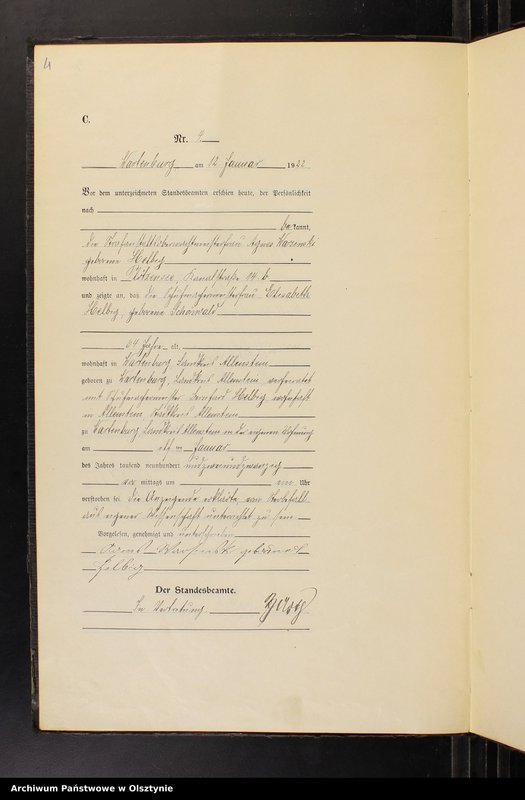 4
C.
Nr. 9.
Wartenburg am 12 Januar 1922
Vor dem unterzeichneten Standesbeamten erschien heute, der Persönlichkeit
nach
be kannt,
die Strafanstaltsoberwachtmeisterfrau Agnes
geborene Helbig
wohnhaft in Plötzensee, Kanalstraße 14 b
und zeigte an, daß die Schuhmachermeisterfrau Elisabeth
Helbig, geborene Schönwald
64 Jahre alt,
wohnhaft in Wartenburg, Landkreis Allenstein
geboren zu Wartenburg, Landkreis Allenstein verheiratet
mit Schuhmachermeister Bernhard Helbig wohnhaft
in Allenstein, Stadtkreis Allenstein
zu Wartenburg Landkreis Allenstein in der eigenen Wohnung
am elften Januar
des Jahres tausend neunhundert undzweiundzwanzig
mittags um Uhr
verstorben sei. Die Anzeigende erklärte von Sterbefall
aus eigener Wissenschaft unterrichtet zu sein
Vorgelesen, genehmigt und unterschrieben
Agnes geborene
Helbig
Der Standesbeamte.
In Vertretung
Archiwum Państwowe w Olsztynie